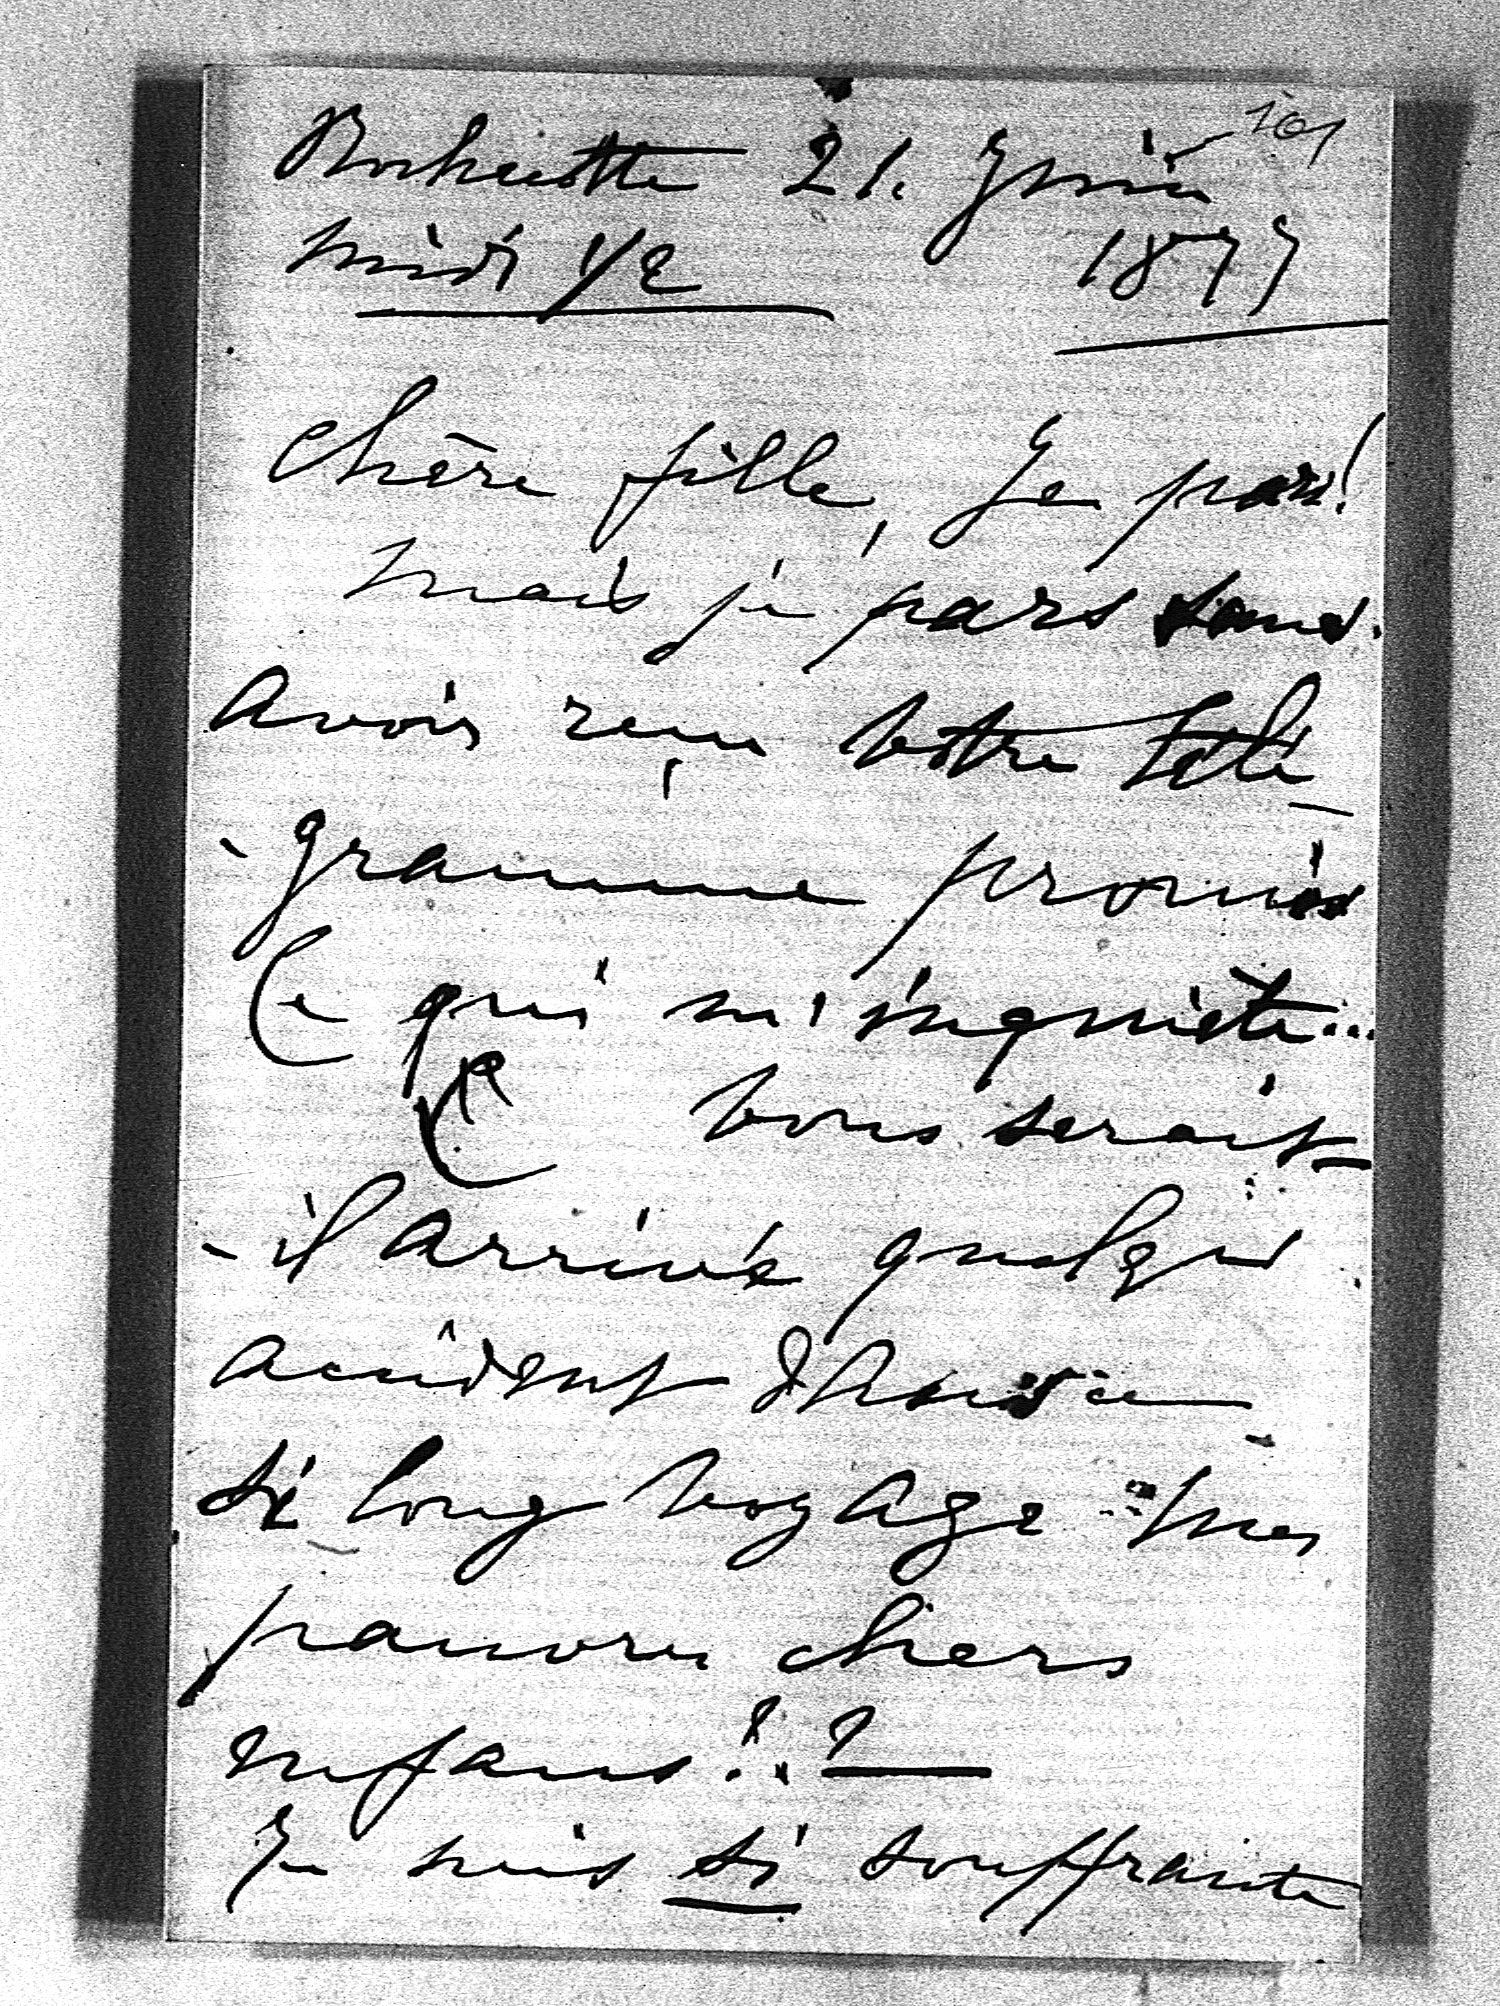 Rochecotte 21. Juin
midi 1/2 1877
Chère fille, Je pars!
mais je pars sans
avoir reçu votre télé-
-gramme promis
Ce qui m'inquiète...
vous serait-
-il arrivé quelque
accident dans ce
si long voyage mes
pauvres chers
enfans!.?
Je suis si souffrante